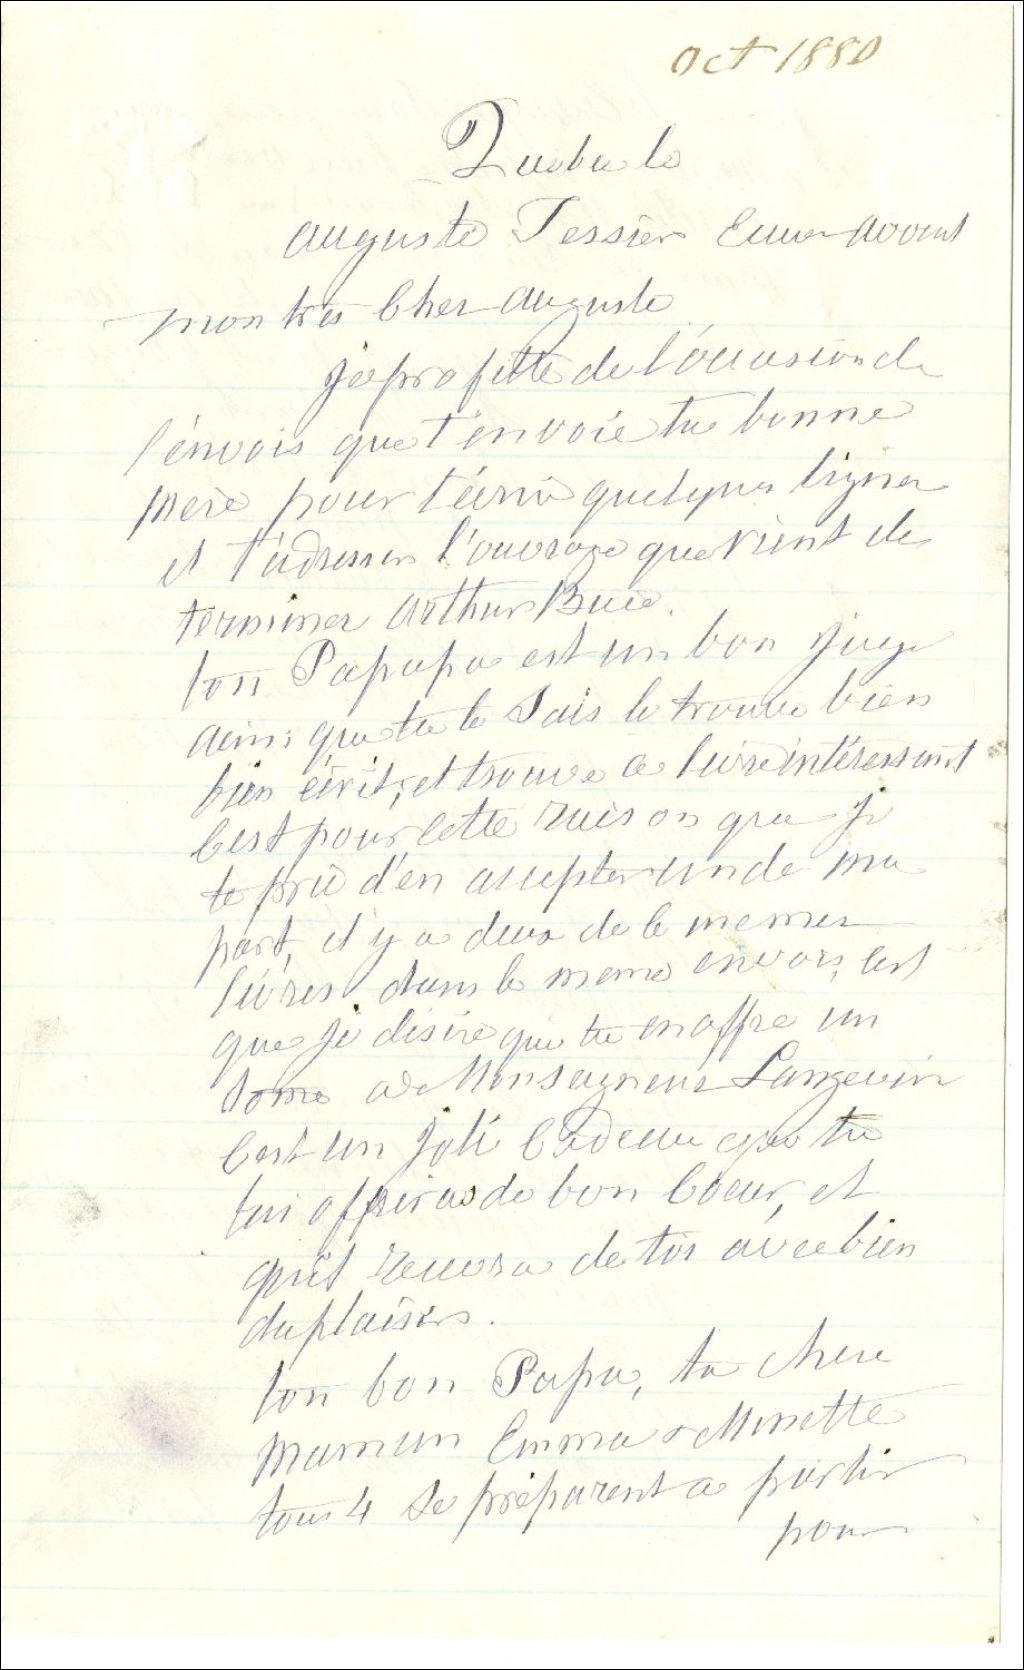 Oct 1880
Quebec le
Auguste Tessier Ecuier avocat
mon très Cher Auguste
je profitte de l'ocasion de
l'énvois que t'envoie ta bonne
mere pour t'écrire quelques lignes
et t'adresser l'ouvrage que vient de
terminer Arthur Buie.
ton Papa qui est un bon juge
ainsi que tu le sais le trouve bien
bien écrit, et trouve ce livre intéressant
C'est pour cette raison que je
te prie d'en accepter un de ma
part, il y a deux de le memes
livres dans le meme envois, c'est
que je désire que tu en offre un
tome a Monseigneur Langevin
C'est un joli Cadeau que tu
lui offriras de bon Coeur, et
qu'il recevra de toi avec bien
du plaisirs.
ton bon Papa, ta chere
maman Emma & Minette
tous 4 se préparent a partir
pour